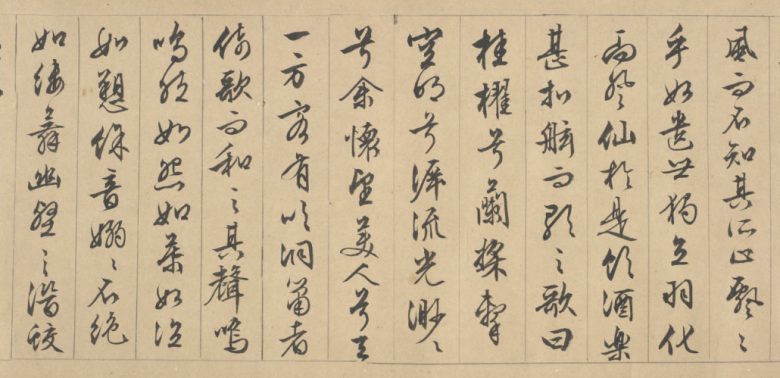 風而不知其所止飄〻
乎如遺世獨立羽化
而登仙於是飲酒樂
甚扣舷而歌之歌曰
桂櫂兮蘭槳擊
空明兮泝流光渺〻
兮余懷望美人兮天
一方客有吹洞簫者
倚歌而和之其聲嗚
嗚然如怨如慕如泣
如愬餘音嫋〻不絕
如縷舞幽壑之潛蛟